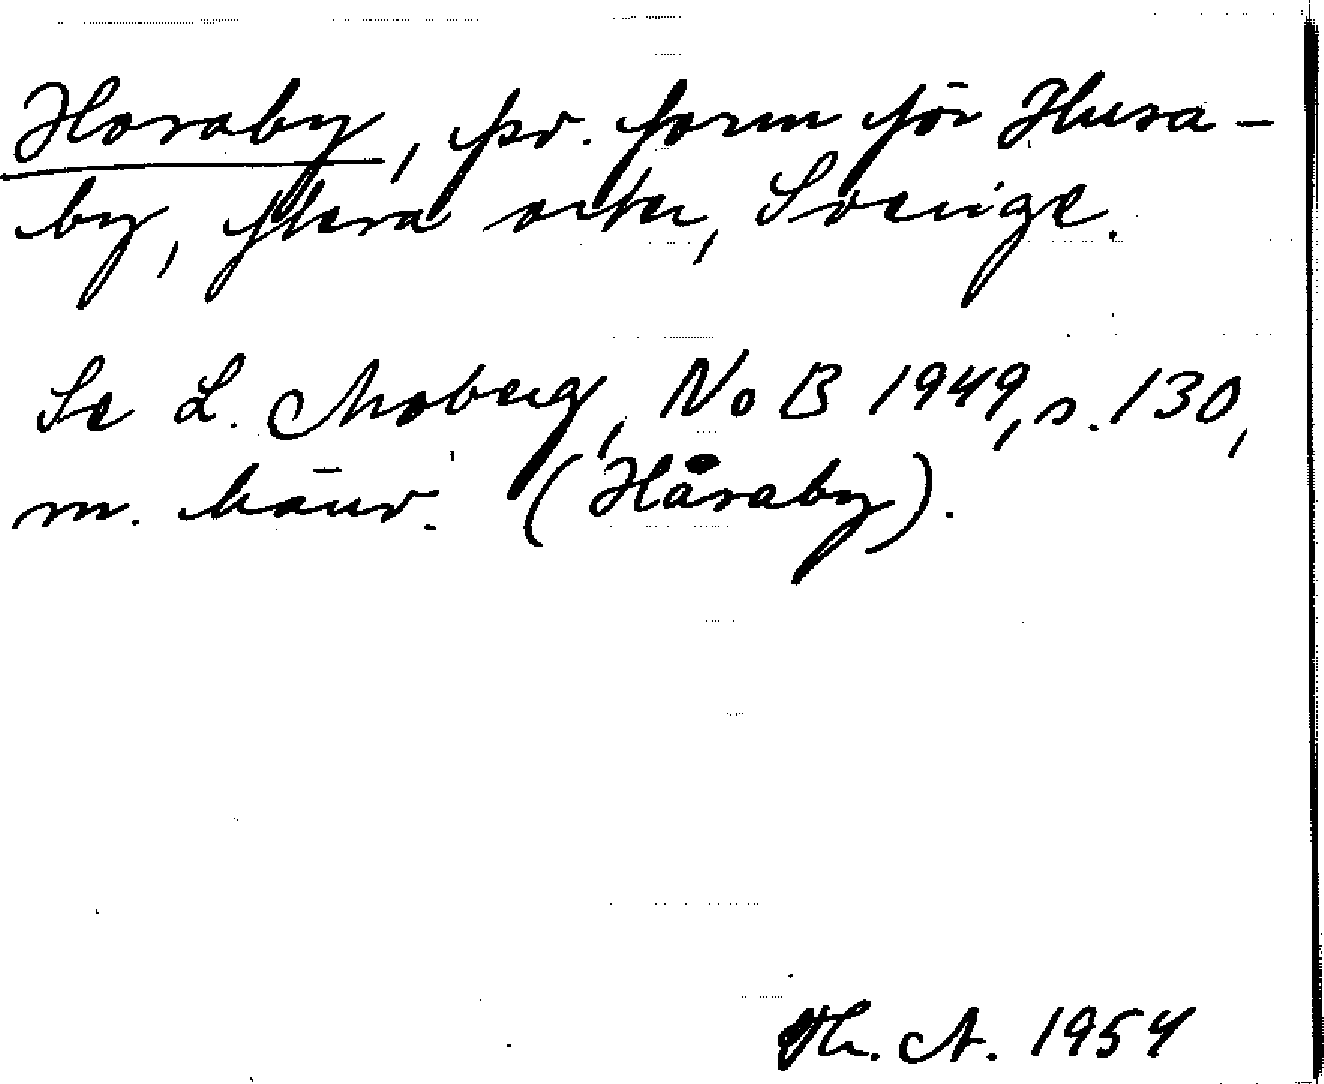 Horaby, pr. form för Husa-
by, flera orter, Sverige.
Se L. Moberg, NoB 1949, s. 130,
m. hänv. (Håraby).
Th. A. 1954